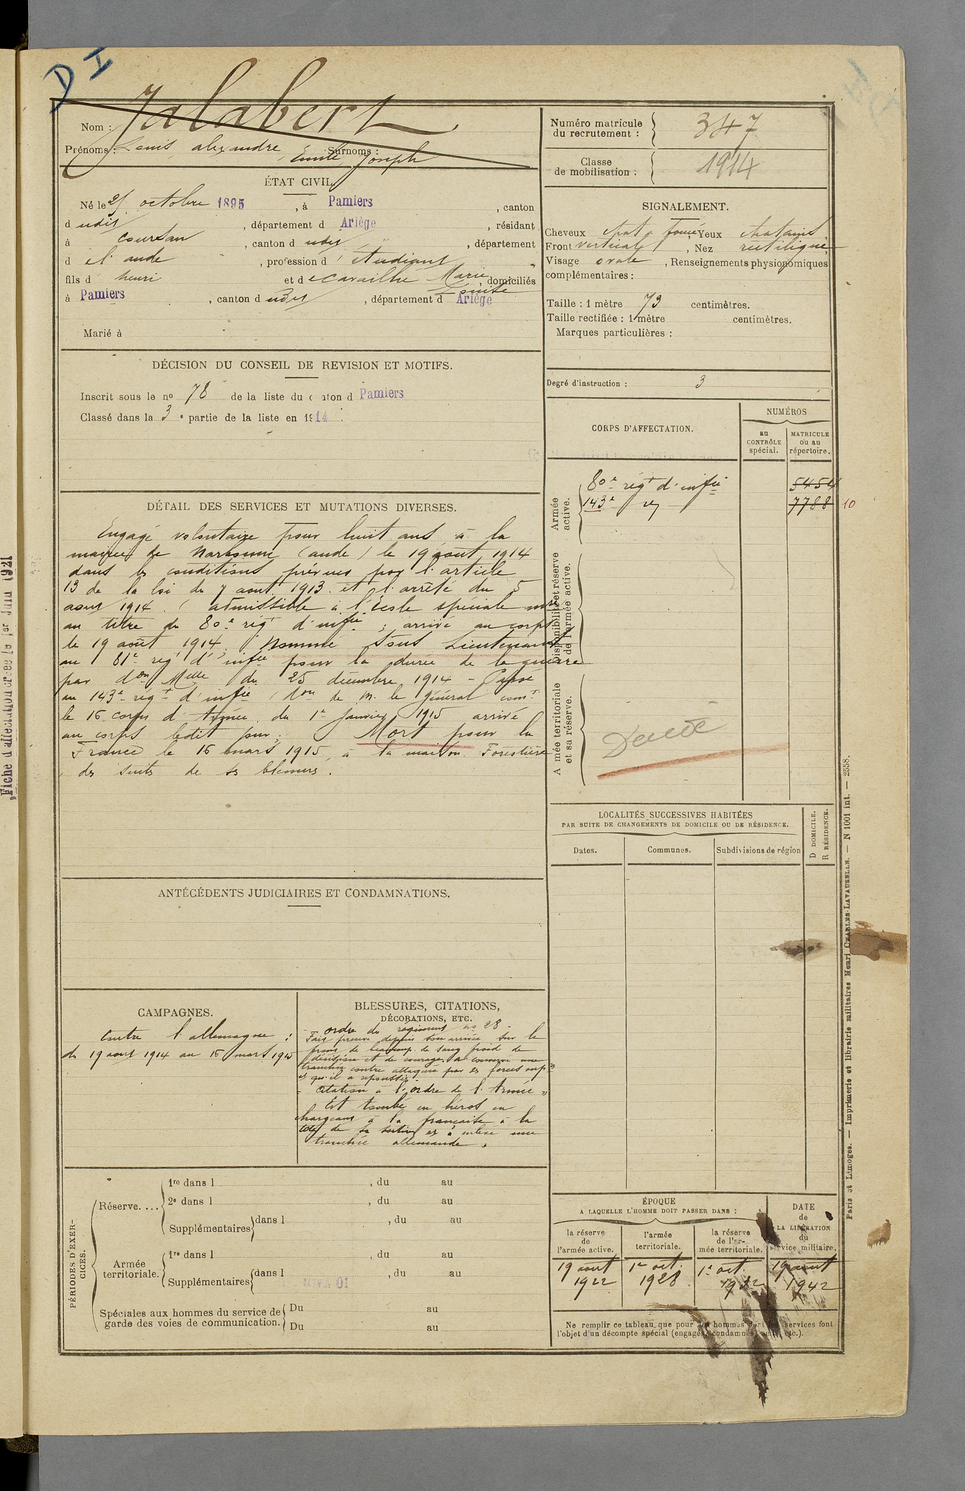 D I
Nom : Jalabert
Prénoms : Louis, alexandre, Emile Joseph Surnoms :
ÉTAT CIVIL.
Né le 25 octobre 1895, à Pamiers, canton
d udit, département d Ariège, résidant
à Coursan, canton d udit, département
d e l'aude, profession d'étudiant,
fils d henri et de Cavailhe Marie Louise, domiciliés
à Pamiers, canton d udit, département d Ariège
Marié à
DÉCISION DU CONSEIL DE REVISION ET MOTIFS.
Inscrit sous le no 78 de la liste du canton d Pamiers
Classé dans la 3e partie de la liste en 1914.
DÉTAIL DES SERVICES ET MUTATIONS DIVERSES.
Engagé volontaire pour huit ans à la
mairie de Narbonne (aude) le 19 aout 1914
dans les conditions prévues par l'article
13 de la loi du 7 aout 1913 et l'arrêté du 5
aout 1914. (admissible à l'école spéciale mre
au titre du 80e régt d'infie ; arrivé au corps
le 19 août 1914. Nommé sous Lieutenant
au 81e régt d'infie pour la durée de la guerre
par don Melle du 25 décembre 1914 - Passé
au 143e régt d'infie (don de M. le Général comt
le 16 corps d'Armée du 1er Janvier 1915 arrivé
au corps ledit jour. Mort pour la
France le 16 mars 1915, à la maison Forestière
des suites de ses blessures.
ANTÉCÉDENTS JUDICIAIRES ET CONDAMNATIONS.
CAMPAGNES.
Contre l'allemagne :
du 19 aout 1914 au 16 mars 1915
BLESSURES, CITATIONS,
DÉCORATIONS, ETC.
ordre du régiment no 28.
Fait preuve depuis son arrivée sur le
front de beaucoup de sang froid de
décision et de courage, a conservé une
tranchée contre attaquée par des forces supes
et qu'il a repoussées.
Citation à l'ordre de l'Armée
Est tombé en héros en
chargeant à la française à la
tête de sa section et a enlevé une
tranchée allemande.
PÉRIODES D'EXERCICES.
Réserve....
1re dans l , du au
2e dans l , du au
Supplémentaires dans l , du au
Armée territoriale.
1re dans l , du au
Supplémentaires dans l , du au
Spéciales aux hommes du service de garde des voies de communication.
Du au
Du au
Numéro matricule
du recrutement : 347
Classe
de mobilisation : 1914
SIGNALEMENT.
Cheveux chat. foncé, Yeux chatains
Front vertical, Nez rectiligne
Visage ovale, Renseignements physionomiques
complémentaires :
Taille : 1 mètre 73 centimètres.
Taille rectifiée : 1 mètre centimètres.
Marques particulières :
Degré d'instruction : 3
CORPS D'AFFECTATION.
NUMÉROS
au CONTRÔLE spécial.
MATRICULE ou au répertoire.
Armée active.
80e régt d'infie 5454
143e id 7788 10
Disponibilité et réserve de l'armée active.
Armée territoriale et sa réserve.
Décédé
LOCALITÉS SUCCESSIVES HABITÉES
PAR SUITE DE CHANGEMENTS DE DOMICILE OU DE RÉSIDENCE.
Dates.
Communes.
Subdivisions de région
D DOMICILE.
R RÉSIDENCE.
ÉPOQUE
A LAQUELLE L'HOMME DOIT PASSER DANS :
la réserve de l'armée active.
l'armée territoriale.
la réserve de l'armée territoriale.
DATE de LA LIBÉRATION du service militaire.
19 aout 1922
1er oct. 1928
1er oct.
19 aout 1942
Ne remplir ce tableau que pour les hommes dont les services font
l'objet d'un décompte spécial (engagés, condamnés, omis, etc.).
Paris et Limoges. — Imprimerie et librairie militaires Henri CHARLES-LAVAUZELLE. — N 1001 int. — 2558.
Fiche d'affectation créée le 1er Juin 1921